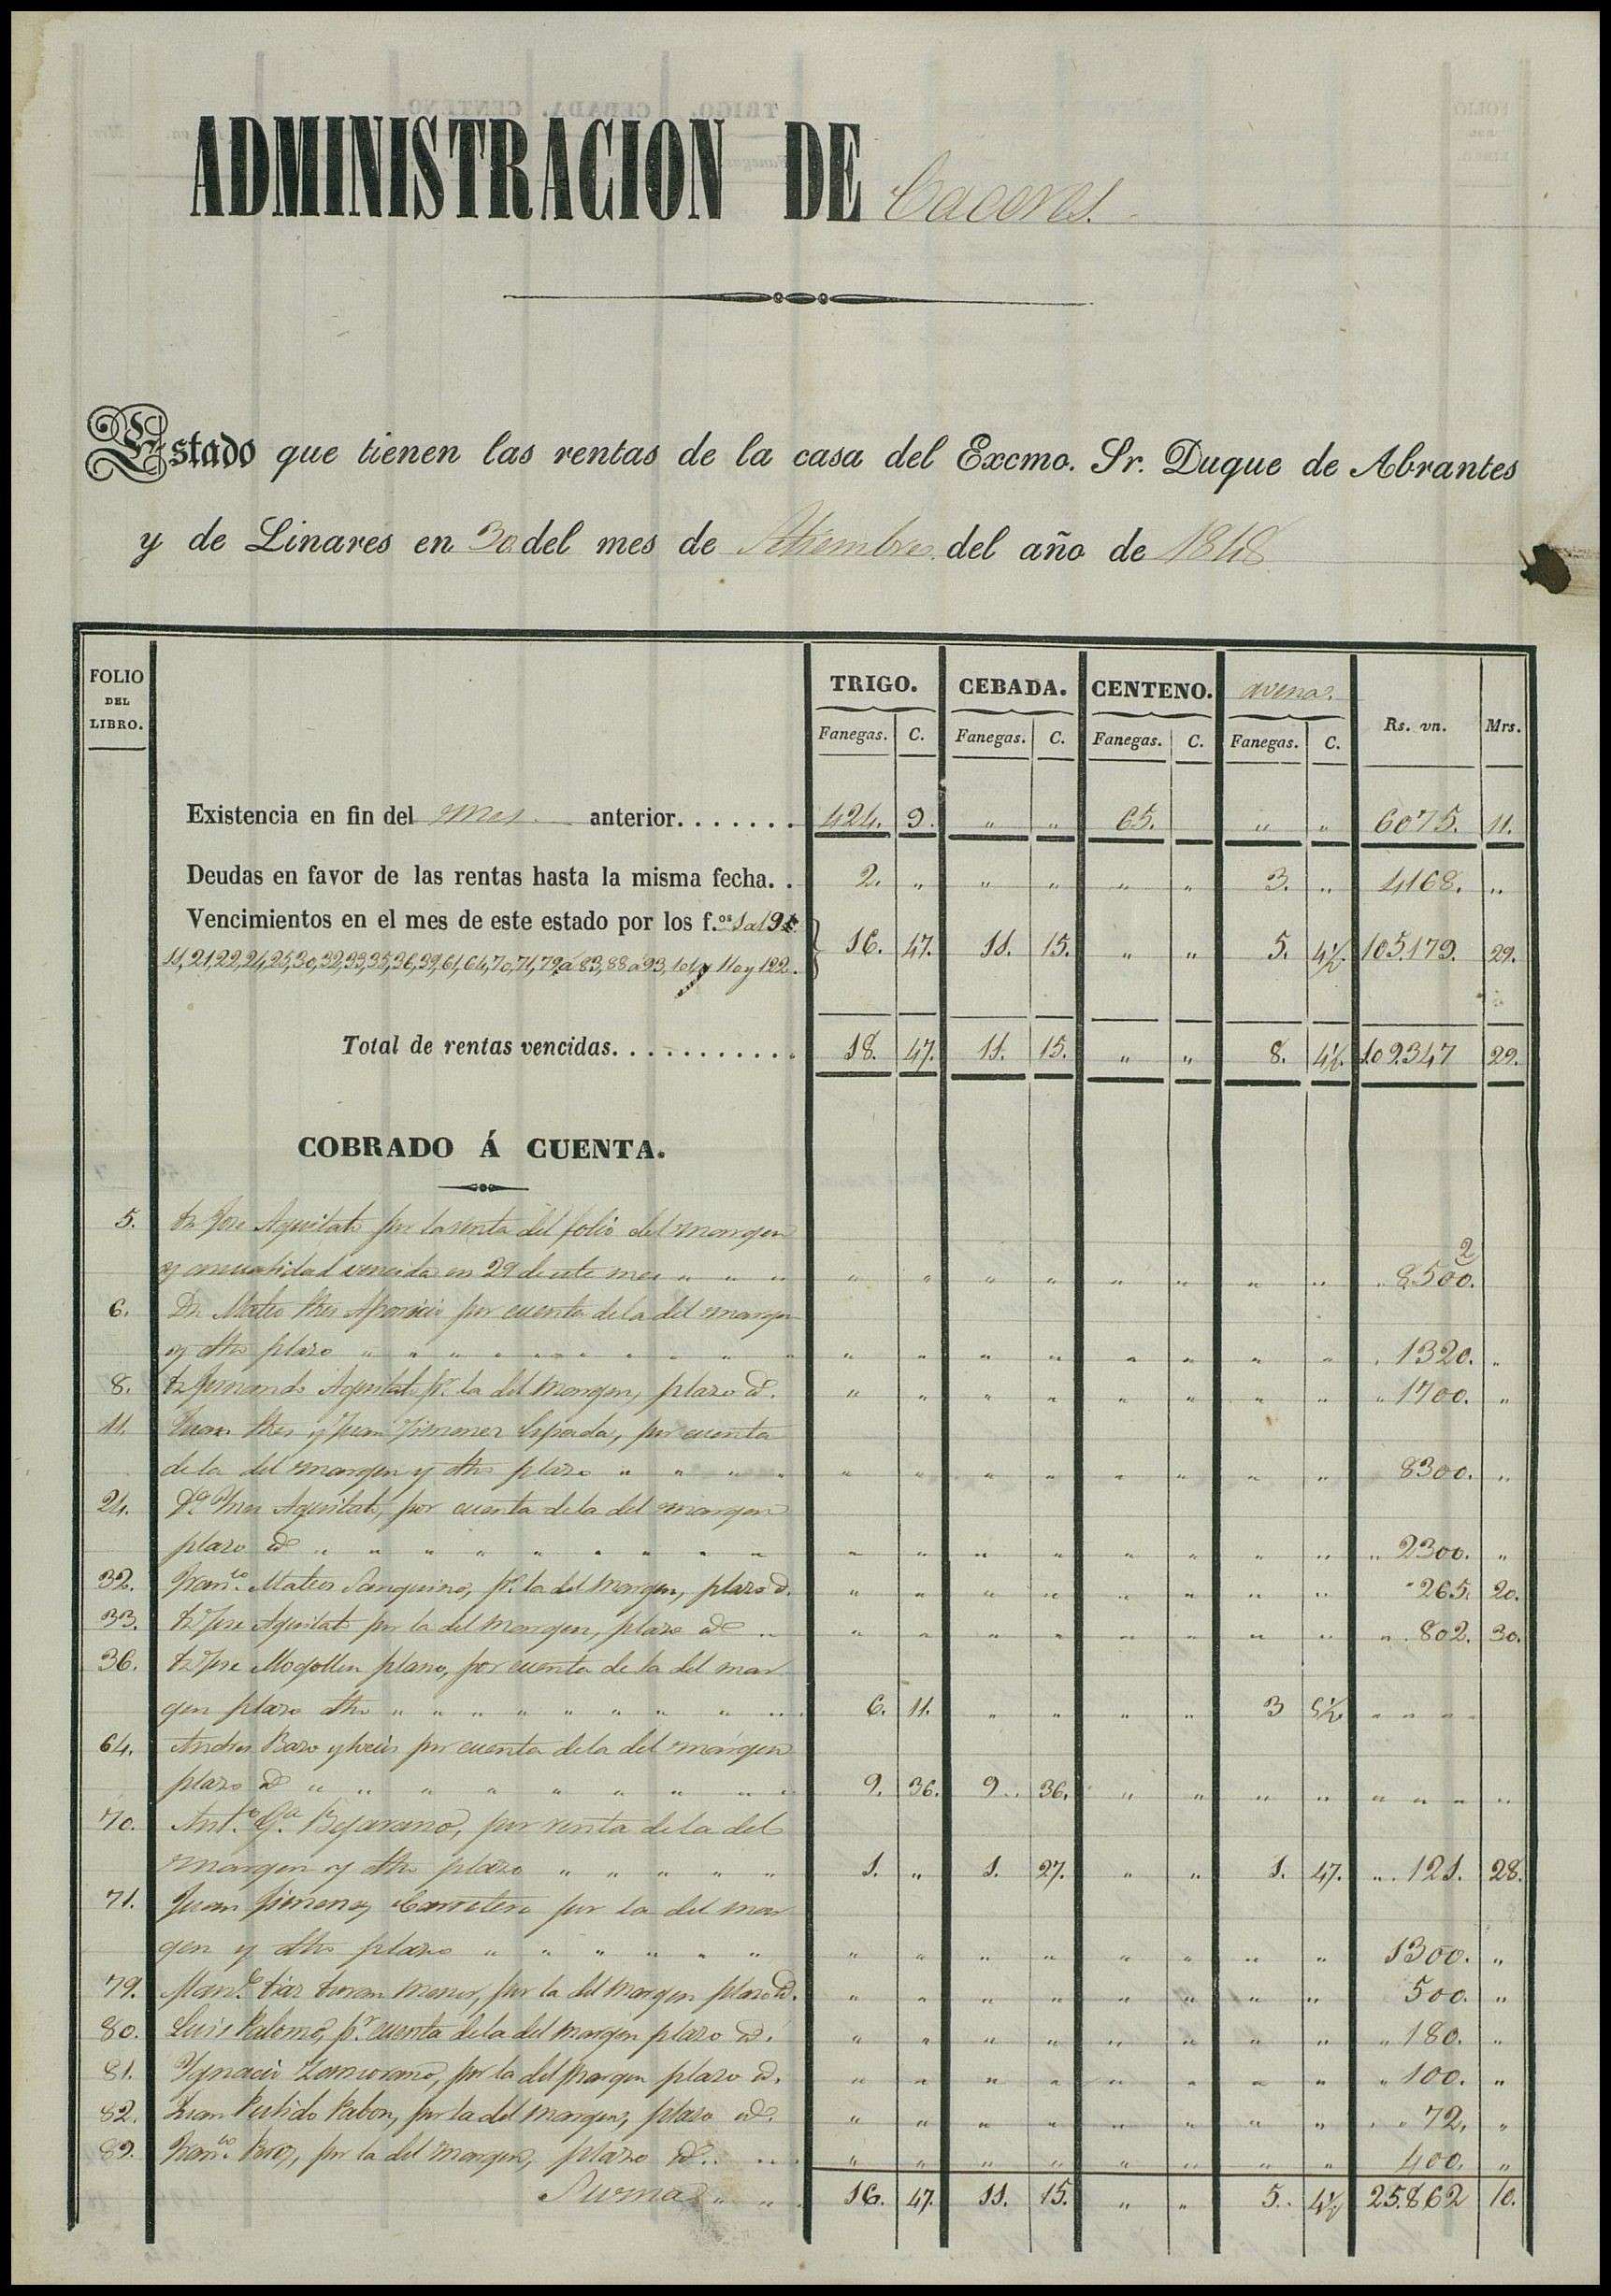 ADMINISTRACION DE Caceres.
Estado que tienen las rentas de la casa del Excmo. Sr. Duque de Abrantes
y de Linares en 30 del mes de Setiembre del año de 1848
FOLIO DEL LIBRO. TRIGO. CEBADA. CENTENO. avena. Rs. vn. Mrs.
Fanegas. C. Fanegas. C. Fanegas. C. Fanegas. C.
Existencia en fin del mes anterior....... 424. 9. " " 65. " " 6075. 11.
Deudas en favor de las rentas hasta la misma fecha. . 2. " " " " " 3. " 4168. "
Vencimientos en el mes de este estado por los f.os 1 a 9
11, 21, 22, 24, 25, 30, 32, 33, 35, 36, 39, 61, 64, 70, 71, 79 á 83, 88 a 93, 101 y 110 y 122. 16. 47. 11. 15. " " 5. 4½. 105.179. 29.
Total de rentas vencidas............ 18. 47. 11. 15. " " 8. 4½. 109.347 29.
COBRADO Á CUENTA.
5. Dn Jose Aguilar por la renta del folio del margen
y anualidad vencida en 29 de este mes " " " " " " " " " " " 2 8500.
6. Dn Mateo Aparicio por cuenta de la del margen
y dho plazo " " " " " " " " 1320. "
8. Dn Fernando pr. la del margen, plazo id. " " " " " " " " 1700. "
11. Juan y Juan Jimenez Cepeda, por cuenta
de la del margen y dho plazo " " " " " " " " " " " " 8300. "
24. Da Ines por cuenta de la del margen
plazo id " " " " " " " " 2300. "
32. Franco. Mateos Sanguino, pr. la del margen, plazo id. " " " " " " " " 265. 20.
33. Dn Jose por la del margen, plazo id " " " " " " " " " 802. 30.
36. Dn Jose Mogollon plano, por cuenta de la del mar
gen plazo dho " " " " " " " " 6. 11. " " " " 3 5½ " " " "
64. Andres Bazo y por cuenta de la del margen
plazo id " " " " " " " 9. 36. 9. 36. " " " " " " " "
70. Anto. Ga. Bejarano, por renta de la del
margen y dho plazo " " " " " 1. " 1. 27. " " 1. 47. " 121. 28.
71. Juan Jimenez Carretero por la del mar
gen y dho plazo " " " " " " " " " " " " " " 1300. "
79. Manl. Diaz Duran menor, por la del margen plazo id. " " " " " " " " 500. "
80. Luis Palomo, pr. cuenta de la del margen plazo id. " " " " " " " " 180. "
81. Ygnacio Zamorano, por la del margen plazo id. " " " " " " " " 100. "
82. Juan Pulido Pabon, por la del margen, plazo id. " " " " " " " " 72. "
89. Franco. por la del margen, plazo id. " " " " " " " " 400. "
Suma " " 16. 47. 11. 15. " " 5. 4½ 25.862 10.